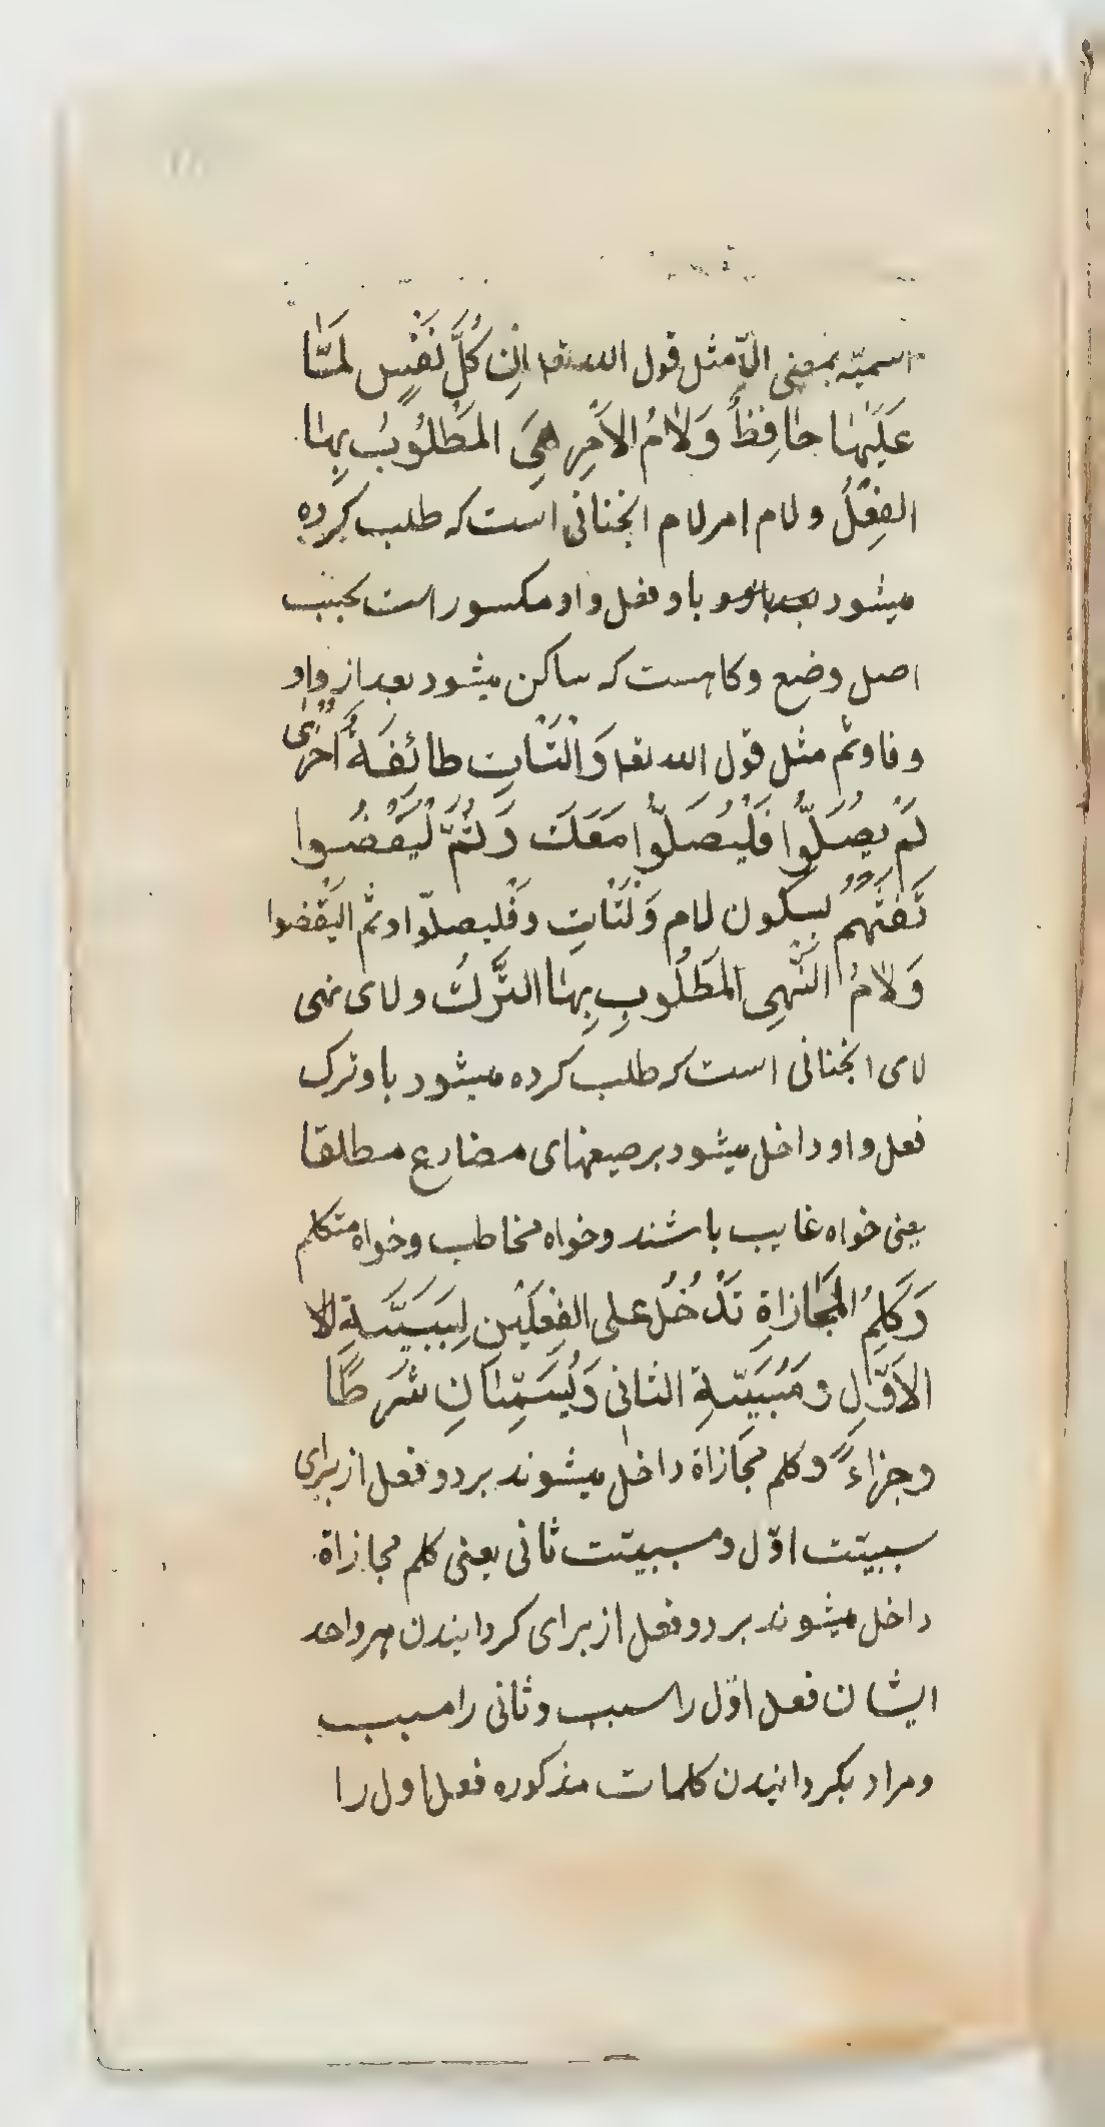 اسمیّه بمعنی الّا مثل قول الله تعا اِنْ کُلُّ نَفْسٍ لَمَّا
عَلَیْهَا حَافِظٌ وَلَامُ الْاَمْرِ هِیَ الْمَطْلُوبُ بِهَا
الْفِعْلُ و لام امر لام انچنانی است که طلب کرده
میشود باو فعل واو مکسور است بحسب
اصل وضع و کاهست که ساکن میشود بعد از واو
و فا و ثم مثل قول الله تعا وَالْتَأتِ طَائِفَةٌ اُخْرَی
لَمْ یُصَلُّوا فَلْیُصَلُّوا مَعَکَ وَ ثُمَّ لْیَقْضُوا
تَفَثَهُمْ بسکون لام وَلْتَأتِ و فْلیصلّوا و ثم الیَقْضوا
وَلَامُ النَّهْیِ الْمَطْلُوبِ بِهَا التَّرْکُ و لای نهی
لای انچنانی است که طلب کرده میشود باو ترک
فعل واو داخل میشود بر صیغهای مضارع مطلقا
یعنی خواه غایب باشند و خواه مخاطب و خواه متکلم
وَکَلِمُ الْمُجَازَاةِ تَدْخُلُ عَلی الْفِعْلَیْنِ لِسَبَبِیَّةِ الا
الْاَوَّلِ وَ مُسَبَّبِیَّةِ الثانی وَیُسَمَّیَانِ شَرْطًا
و جزاءً و کلم مجازاة داخل میشوند بر دو فعل از برای
سببیّت اوّل و مسببیّت ثانی یعنی کلم مجازاة
داخل میشوند بر دو فعل از برای کردانیدن هر واحد
ایشان فعل اوّل را سبب و ثانی را مسبب
و مراد بکردانیدن کلمات مذکوره فعل اول را